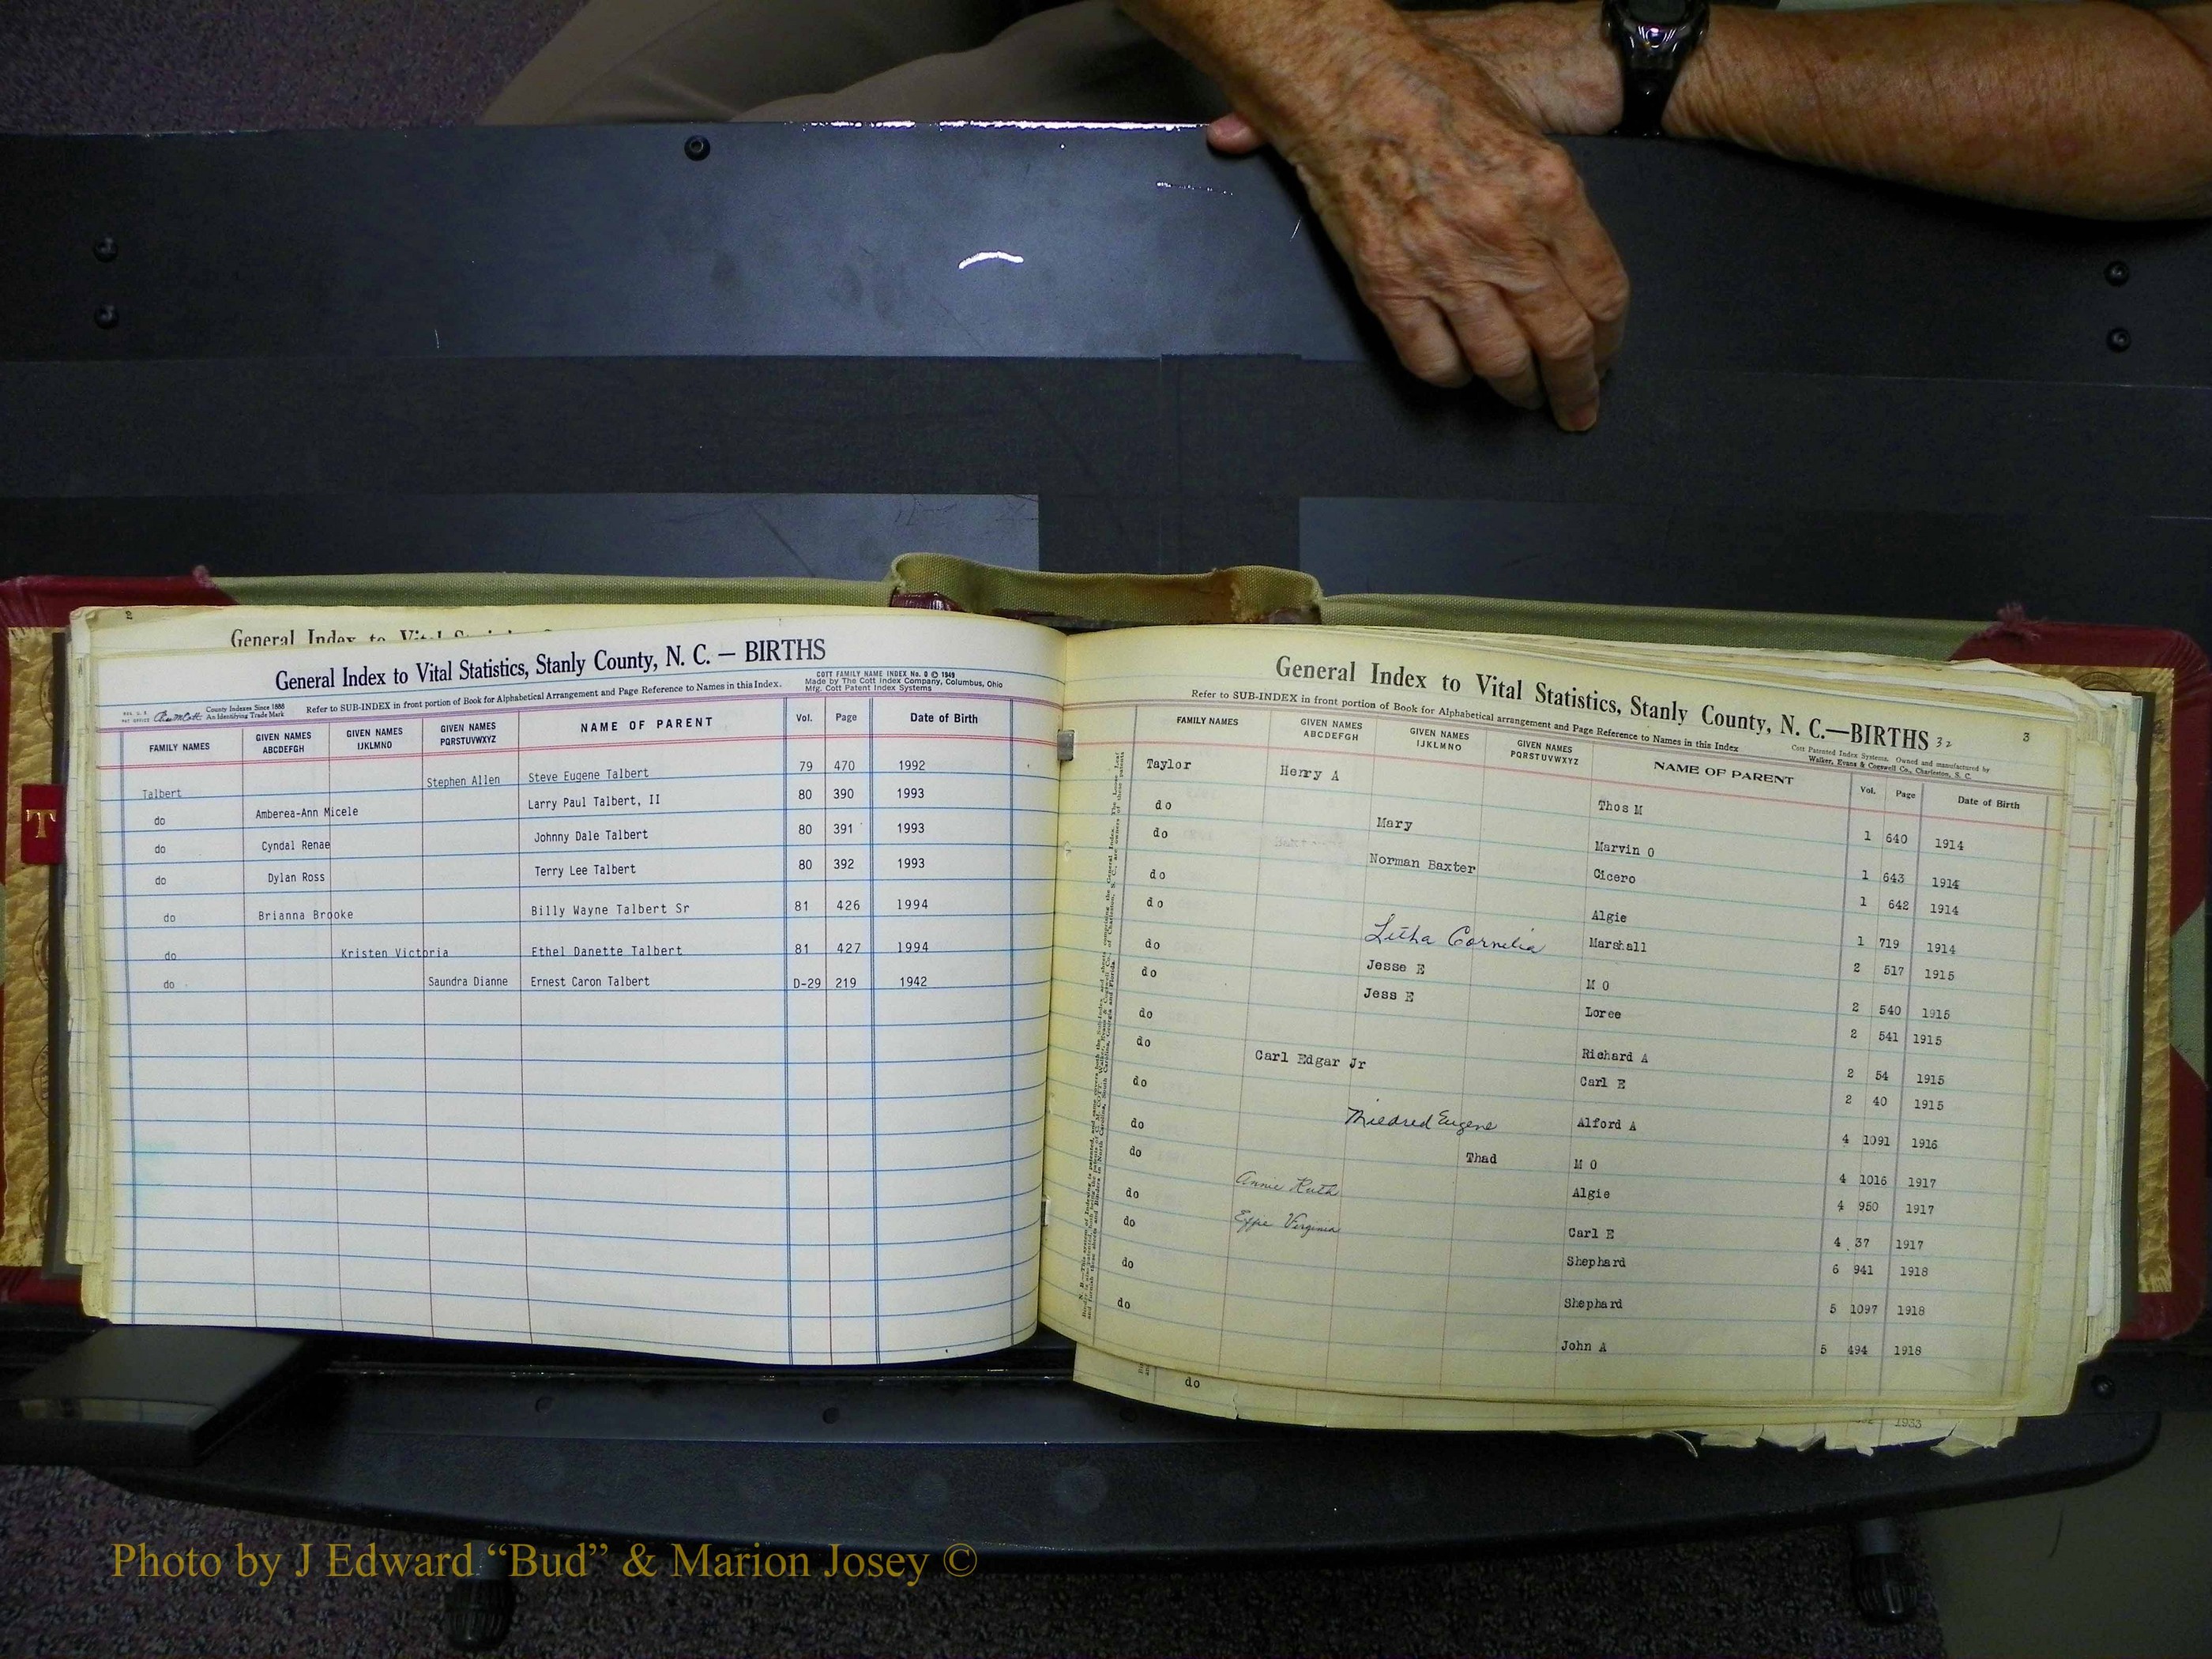 General Index to Vital Statistics, Stanly County, N. C. — BIRTHS
COTT FAMILY NAME INDEX No. 0 © 1949
Made by The Cott Index Company, Columbus, Ohio
Mfg. Cott Patent Index Systems
County Indexes Since 1888
An Identifying Trade Mark
Refer to SUB-INDEX in front portion of Book for Alphabetical Arrangement and Page Reference to Names in this Index.
FAMILY NAMES GIVEN NAMES ABCDEFGH GIVEN NAMES IJKLMNO GIVEN NAMES PQRSTUVWXYZ NAME OF PARENT Vol. Page Date of Birth
Talbert Stephen Allen Steve Eugene Talbert 79 470 1992
do Amberea-Ann Micele Larry Paul Talbert, II 80 390 1993
do Cyndal Renae Johnny Dale Talbert 80 391 1993
do Dylan Ross Terry Lee Talbert 80 392 1993
do Brianna Brooke Billy Wayne Talbert Sr 81 426 1994
do Kristen Victoria Ethel Danette Talbert 81 427 1994
do Saundra Dianne Ernest Caron Talbert D-29 219 1942
T
General Index to Vital Statistics, Stanly County, N. C.—BIRTHS 32
3
Refer to SUB-INDEX in front portion of Book for Alphabetical arrangement and Page Reference to Names in this Index
Cott Patented Index Systems. Owned and manufactured by
Walker, Evans & Cogswell Co., Charleston, S. C.
FAMILY NAMES GIVEN NAMES ABCDEFGH GIVEN NAMES IJKLMNO GIVEN NAMES PQRSTUVWXYZ NAME OF PARENT Vol. Page Date of Birth
Taylor Henry A Thos M 1 640 1914
do Mary Marvin O 1 643 1914
do Norman Baxter Cicero 1 642 1914
do Algie 1 719 1914
do Litha Cornelia Marshall 2 517 1915
do Jesse E M O 2 540 1915
do Jess E Loree 2 541 1915
do Richard A 2 54 1915
do Carl Edgar Jr Carl E 2 40 1915
do Alford A 4 1091 1916
do Mildred Eugene M O 4 1016 1917
do Thad Algie 4 950 1917
do Annie Ruth Carl E 4 37 1917
do Effie Virginia Shephard 6 941 1918
do Shephard 5 1097 1918
do John A 5 494 1918
do
1933
Photo by J Edward “Bud” & Marion Josey ©